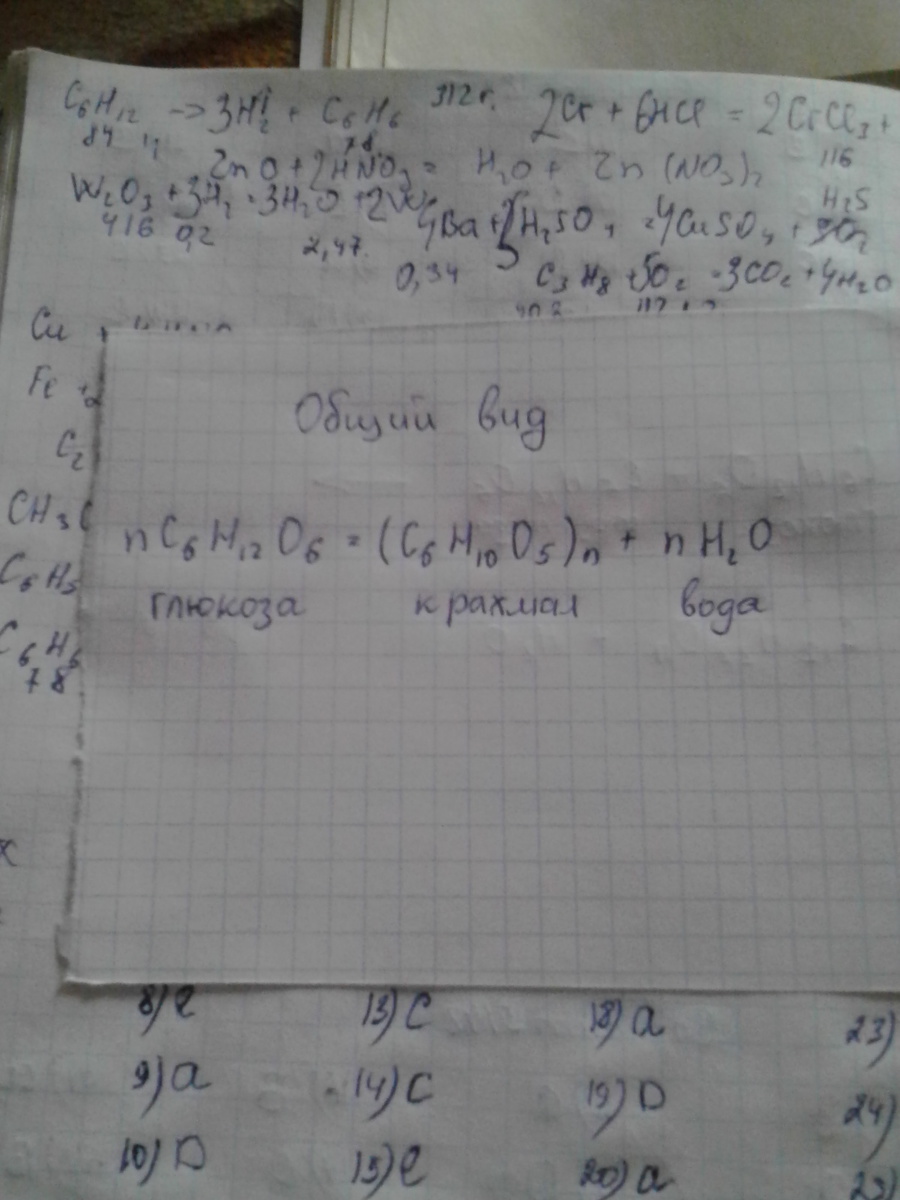 C₆H₁₂ → 3H₂ + C₆H₆ 312г. 2Cr + 6HCl = 2CrCl₃ +
84 78 116
ZnO + 2HNO₃ = H₂O + Zn(NO₃)₂
W₂O₃ + 3H₂ = 3H₂O + 2W H₂S
416 0,2 2,47. 4Ba + 5H₂SO₄ = 4CuSO₄ +
0,34 C₃H₈ + 5O₂ = 3CO₂ + 4H₂O
Cu +
Fe +
C₂
CH₃C
C₆H₅
C₆H₆
78
Общий вид
nC₆H₁₂O₆ = (C₆H₁₀O₅)n + nH₂O
глюкоза крахмал вода
8) e 13) C 18) a 23)
9) a 14) C 19) D 24)
10) D 15) e 20) a 25)